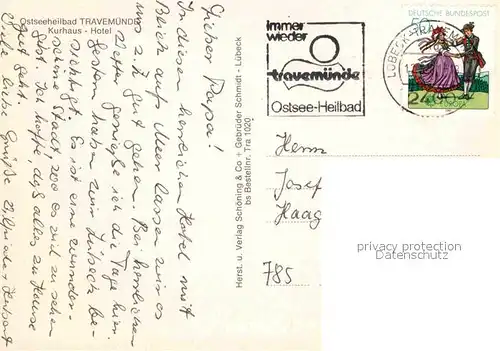 Ostseeheilbad TRAVEMÜNDE
Kurhaus - Hotel
Lieber Papa!
In diesem herrlichen Hotel mit
Blick aufs Meer lassen wir es
uns z. Z. gut gehen. Bei herrlichem
Wetter genieße ich die Tage hier.
Gestern haben wir Lübeck be-
sichtigt. Es ist eine wunder-
schöne Stadt, die es viel zu sehen
gibt. Ich hoffe, daß alles zu Hause
gut geht.
Viele liebe Grüße
Herst. u. Verlag Schöning & Co + Gebrüder Schmidt - Lübeck
bs Bestellnr. Tra 1020
immer
wieder
travemünde
Ostsee-Heilbad
DEUTSCHE BUNDESPOST
LÜBECK-TRAVEM
24
Herrn
Josef
Haag
785
privacy protection
Datenschutz